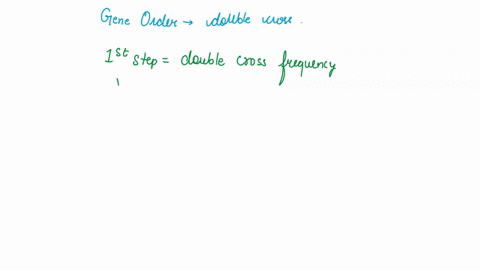 Gene Order → double cross.
1st step = double cross frequency